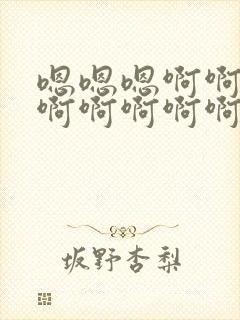 嗯嗯嗯啊啊
啊啊啊啊啊
坂野杏梨